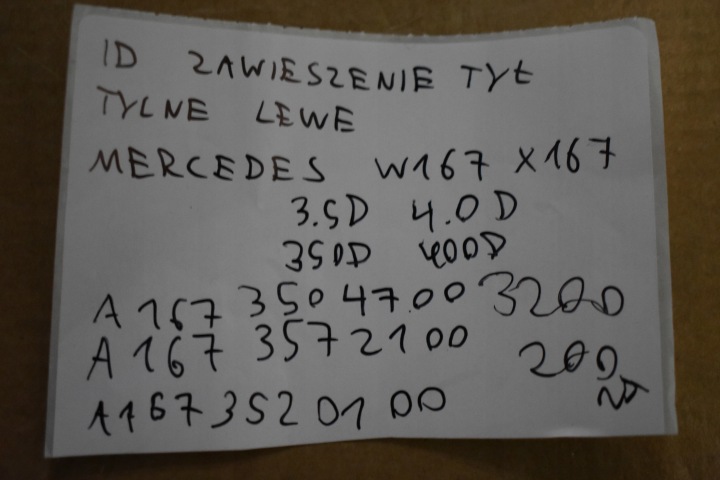 ID ZAWIESZENIE TYŁ
TYLNE LEWE
MERCEDES W167 X167
3.5D 4.0D
350D 400D
A 167 350 47 00 3200
A 167 357 21 00 200
A 167 352 01 00